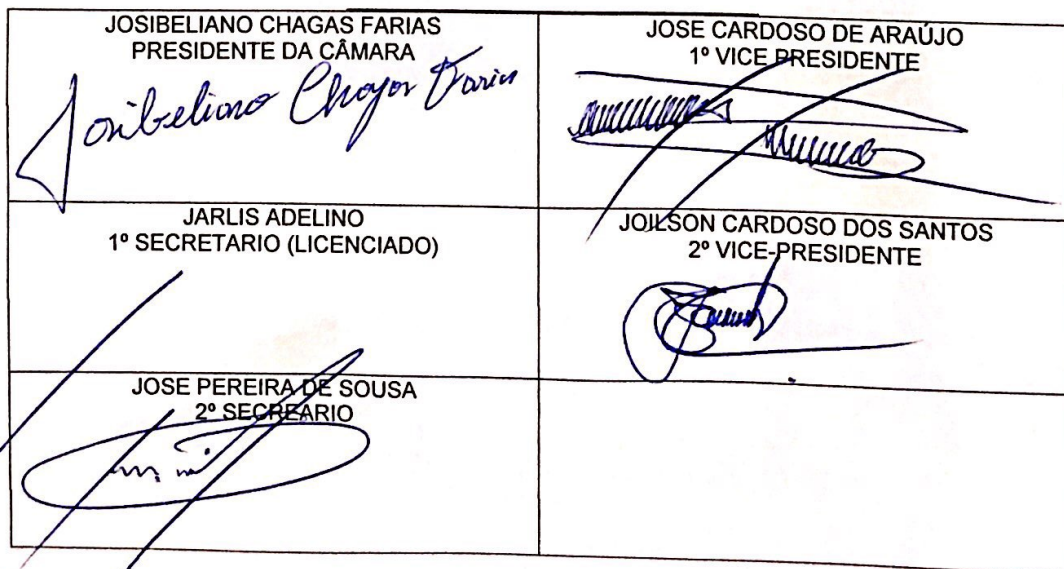 JOSIBELIANO CHAGAS FARIAS
PRESIDENTE DA CÂMARA
Josibeliano Chagas Farias
JOSE CARDOSO DE ARAÚJO
1º VICE PRESIDENTE
JARLIS ADELINO
1º SECRETARIO (LICENCIADO)
JOILSON CARDOSO DOS SANTOS
2º VICE-PRESIDENTE
JOSE PEREIRA DE SOUSA
2º SECREARIO